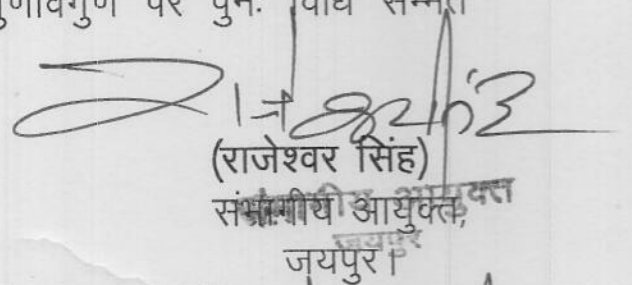 गुणावगुण पर पुनः विधि सम्मत
(राजेश्वर सिंह)
संभागीय आयुक्त,
जयपुर।